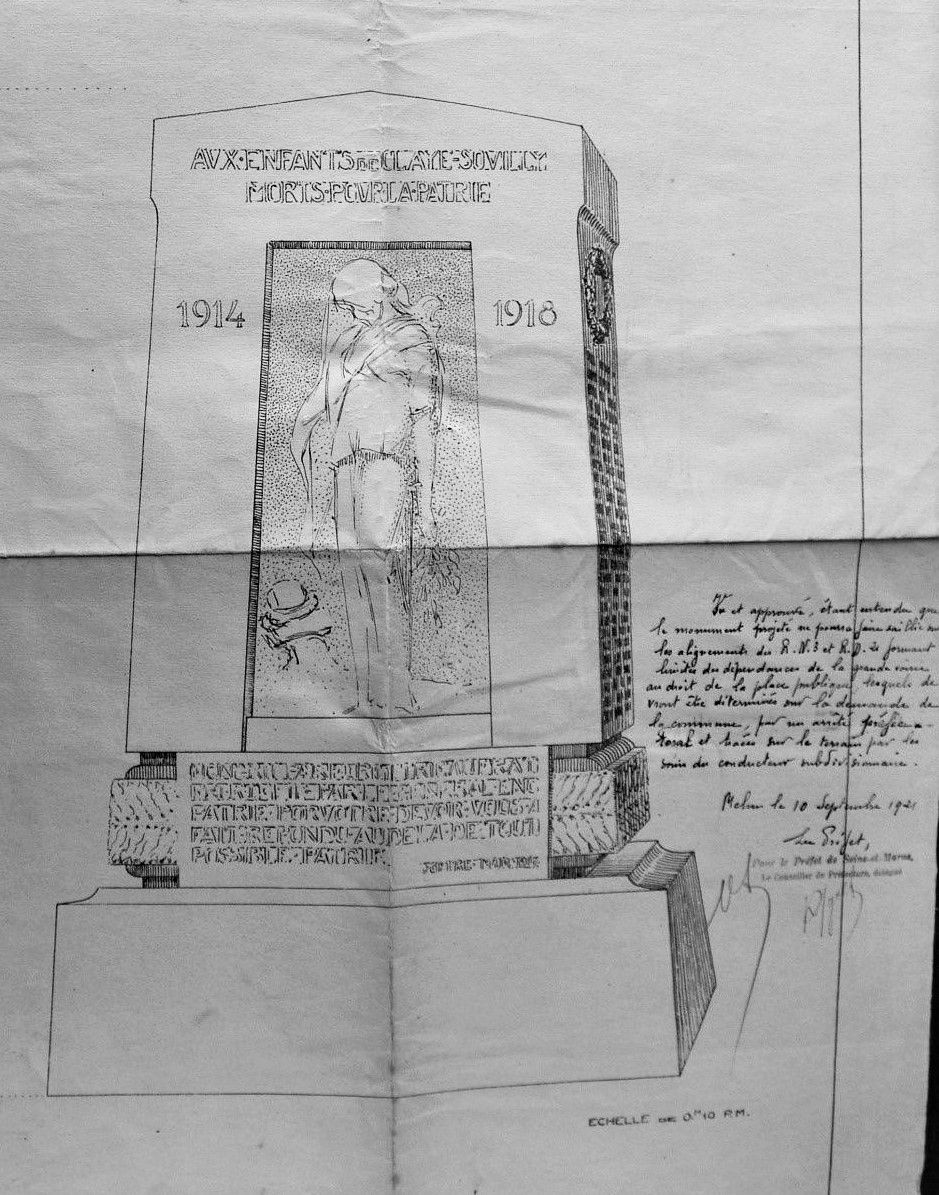 AVX·ENFANTS DE CLAYE-SOVILLY
MORTS·POVR·LA·PATRIE
1914
1918
PATRIE·POVR·VOTRE·DEVOIR·VOUS·A
FAIT·REPONDU·AU·DELA·DE·TOUT
POSSIBLE·PATRIE
Vu et approuvé, étant entendu que
le monument projeté ne pourra faire saillie sur
les alignements des R.N.3 et R.D. formant
limites des dépendances de la grande voirie
au droit de la place publique, lesquels de
vront être déterminés sur la demande de
la commune, par un arrêté préfec-
toral et tracés sur le terrain par les
soins du conducteur subdivisionnaire.
Melun le 10 Septembre 1921
Le Préfet,
Pour le Préfet de Seine-et-Marne,
Le Conseiller de Préfecture, délégué
ECHELLE DE 0.M10 P.M.